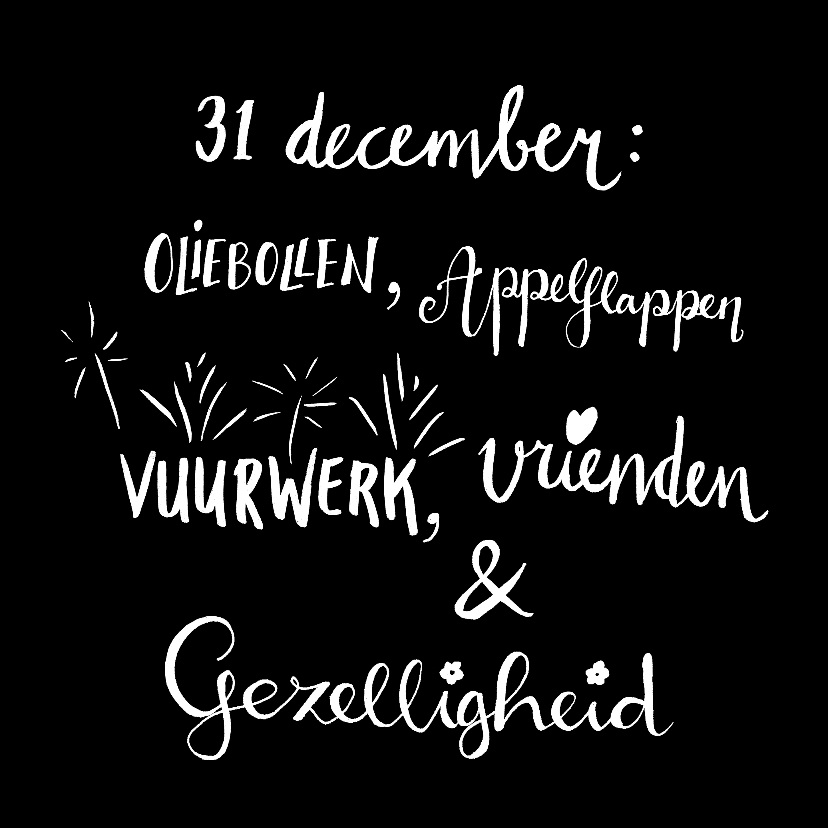 31 december:
OLIEBOLLEN, Appelflappen
VUURWERK, vrienden
&
Gezelligheid